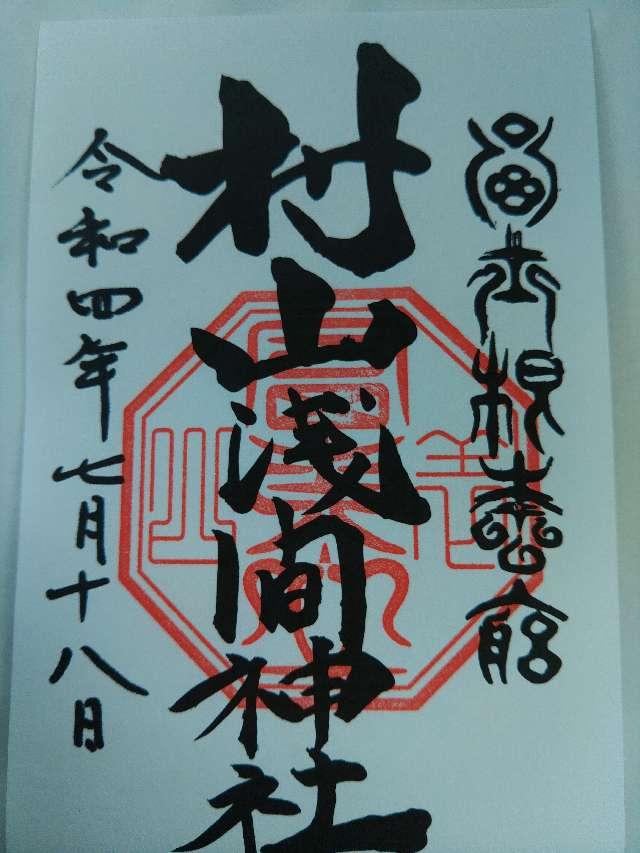 冨士根本宮
村山浅間神社
令和四年七月十八日